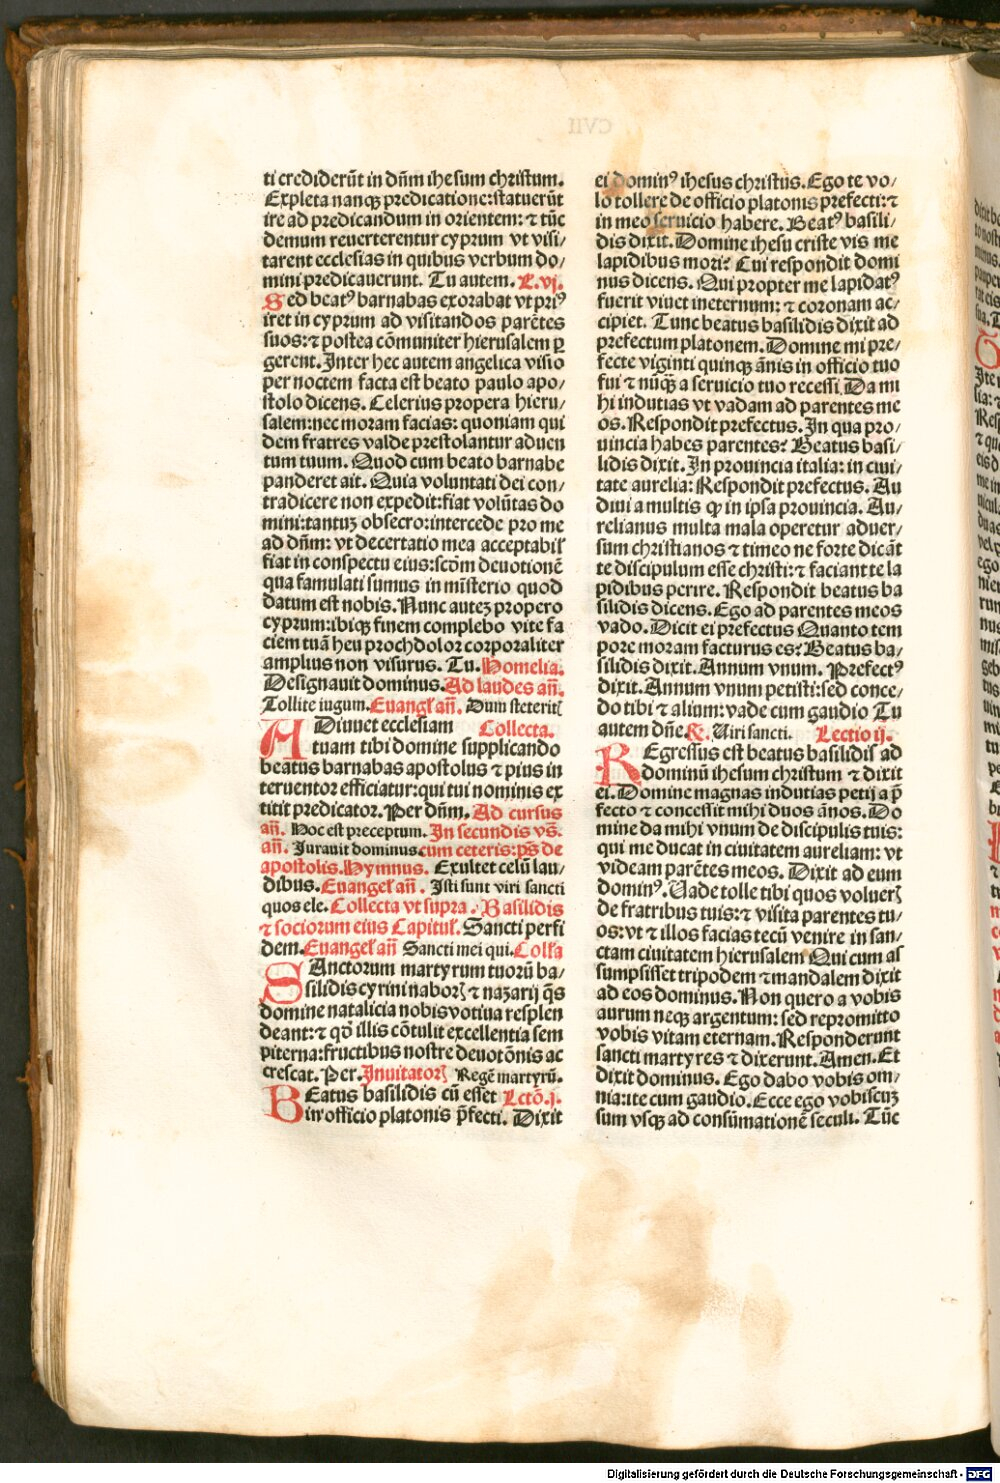 ti crediderūt in dn̄m ihesum christum.
Expleta nanqꝫ predicatione: statuerūt
ire ad predicandum in orientem: ⁊ tūc
demum reuerterentur cyprum vt visi/
tarent ecclesias in quibus verbum do/
mini predicauerunt. Tu autem. L. vj.
Sed beatꝰ barnabas exorabat vt priꝰ
iret in cyprum ad visitandos parētes
suos: ⁊ postea cōmuniter hierusalem ꝑ
gerent. Inter hec autem angelica visio
per noctem facta est beato paulo apo/
stolo dicens. Celerius propera hieru/
salem: nec moram facias: quoniam qui
dem fratres valde prestolantur aduen
tum tuum. Quod cum beato barnabe
panderet ait. Quia voluntati dei con/
tradicere non expedit: fiat volūtas do
mini: tantuꝫ obsecro: intercede pro me
ad dn̄m: vt decertatio mea acceptabił
fiat in conspectu eius: scōm deuotionē
qua famulati sumus in misterio quod
datum est nobis. Nunc auteꝫ propero
cyprum: ibiqꝫ finem complebo vite fa
ciem tuā heu proch dolor corporaliter
amplius non visurus. Tu. Homelia.
Designauit dominus. Ad laudes an̄.
Tollite iugum. Euangł an̄. Dum steteritꝭ
ADiuuet ecclesiam Collecta.
tuam tibi domine supplicando
beatus barnabas apostolus ⁊ pius in
teruentor efficiatur: qui tui nominis ex
titit predicator. Per dn̄m. Ad cursus
an̄. Hoc est preceptum. In secundis vs̄.
an̄. Jurauit dominus cum ceteris: ps̄ de
apostolis. Hymnus. Exultet celū lau/
dibus. Euangeł an̄. Isti sunt viri sancti
quos ele. Collecta vt supra. Basilidis
⁊ sociorum eius Capituł. Sancti perfi
dem. Euangeł an̄ Sancti mei qui. Collꝰa
SAnctorum martyrum tuorū ba/
silidis cyrini naborꝭ ⁊ nazarij qs̄
domine natalicia nobis votiua resplen
deant: ⁊ qđ illis cōtulit excellentia sem
piterna: fructibus nostre deuotōnis ac
crescat. Per. Inuitatorꝭ Regē martyrū.
BEatus basilidis cū esset Lctō. j.
in officio platonis p̄fecti. Dixit
ei dominꝰ ihesus christus. Ego te vo/
lo tollere de officio platonis prefecti: ⁊
in meo seruicio habere. Beatꝰ basili/
dis dixit. Domine ihesu criste vis me
lapidibus mori? Cui respondit domi
nus dicens. Qui propter me lapidatꝰ
fuerit viuet ineternum: ⁊ coronam ac/
cipiet. Tunc beatus basilidis dixit ad
prefectum platonem. Domine mi pre/
fecte viginti quinqꝫ ānis in officio tuo
fui ⁊ nūqꝫ a seruicio tuo recessi. Da mi
hi indutias vt vadam ad parentes me
os. Respondit prefectus. In qua pro/
uincia habes parentes? Beatus basi/
lidis dixit. In prouincia italia: in ciui/
tate aurelia: Respondit prefectus. Au
diui a multis ꝙ in ipsa prouincia. Au/
relianus multa mala operetur aduer/
sum christianos ⁊ timeo ne forte dicāt
te discipulum esse christi: ⁊ faciant te la
pidibus perire. Respondit beatus ba
silidis dicens. Ego ad parentes meos
vado. Dicit ei prefectus Quanto tem
pore moram facturus es? Beatus ba/
silidis dixit. Annum vnum. Prefectꝰ
dixit. Annum vnum petisti: sed conce/
do tibi ⁊ alium: vade cum gaudio Tu
autem dn̄e. R. Uiri sancti. Lectio ij.
REgressus est beatus basilidis ad
dominū ihesum christum ⁊ dixit
ei. Domine magnas indutias petij a p̄
fecto ⁊ concessit mihi duos ānos. Do
mine da mihi vnum de discipulis tuis:
qui me ducat in ciuitatem aureliam: vt
videam parētes meos. Dixit ad eum
dominꝰ. Uade tolle tibi quos voluerꝭ
de fratribus tuis: ⁊ visita parentes tu/
os: vt ⁊ illos facias tecū venire in san/
ctam ciuitatem hierusalem Qui cum as
sumpsisset tripodem ⁊ mandalem dixit
ad eos dominus. Non quero a vobis
aurum neqꝫ argentum: sed repromitto
vobis vitam eternam. Responderunt
sancti martyres ⁊ dixerunt. Amen. Et
dixit dominus. Ego dabo vobis om/
nia: ite cum gaudio. Ecce ego vobiscuꝫ
sum vsqꝫ ad consūmationē seculi. Tūc
Digitalisierung gefördert durch die Deutsche Forschungsgemeinschaft - DFG